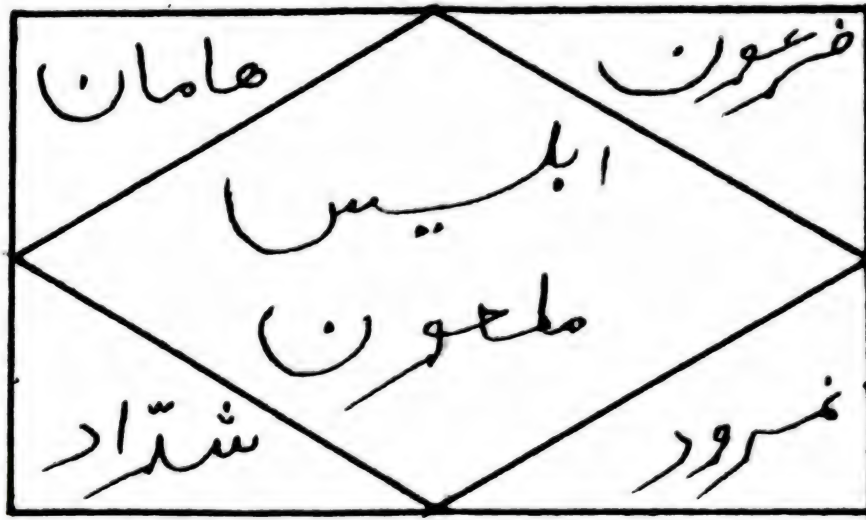 فرعون
هامان
ابلیس
ملعون
نمرود
شدّاد